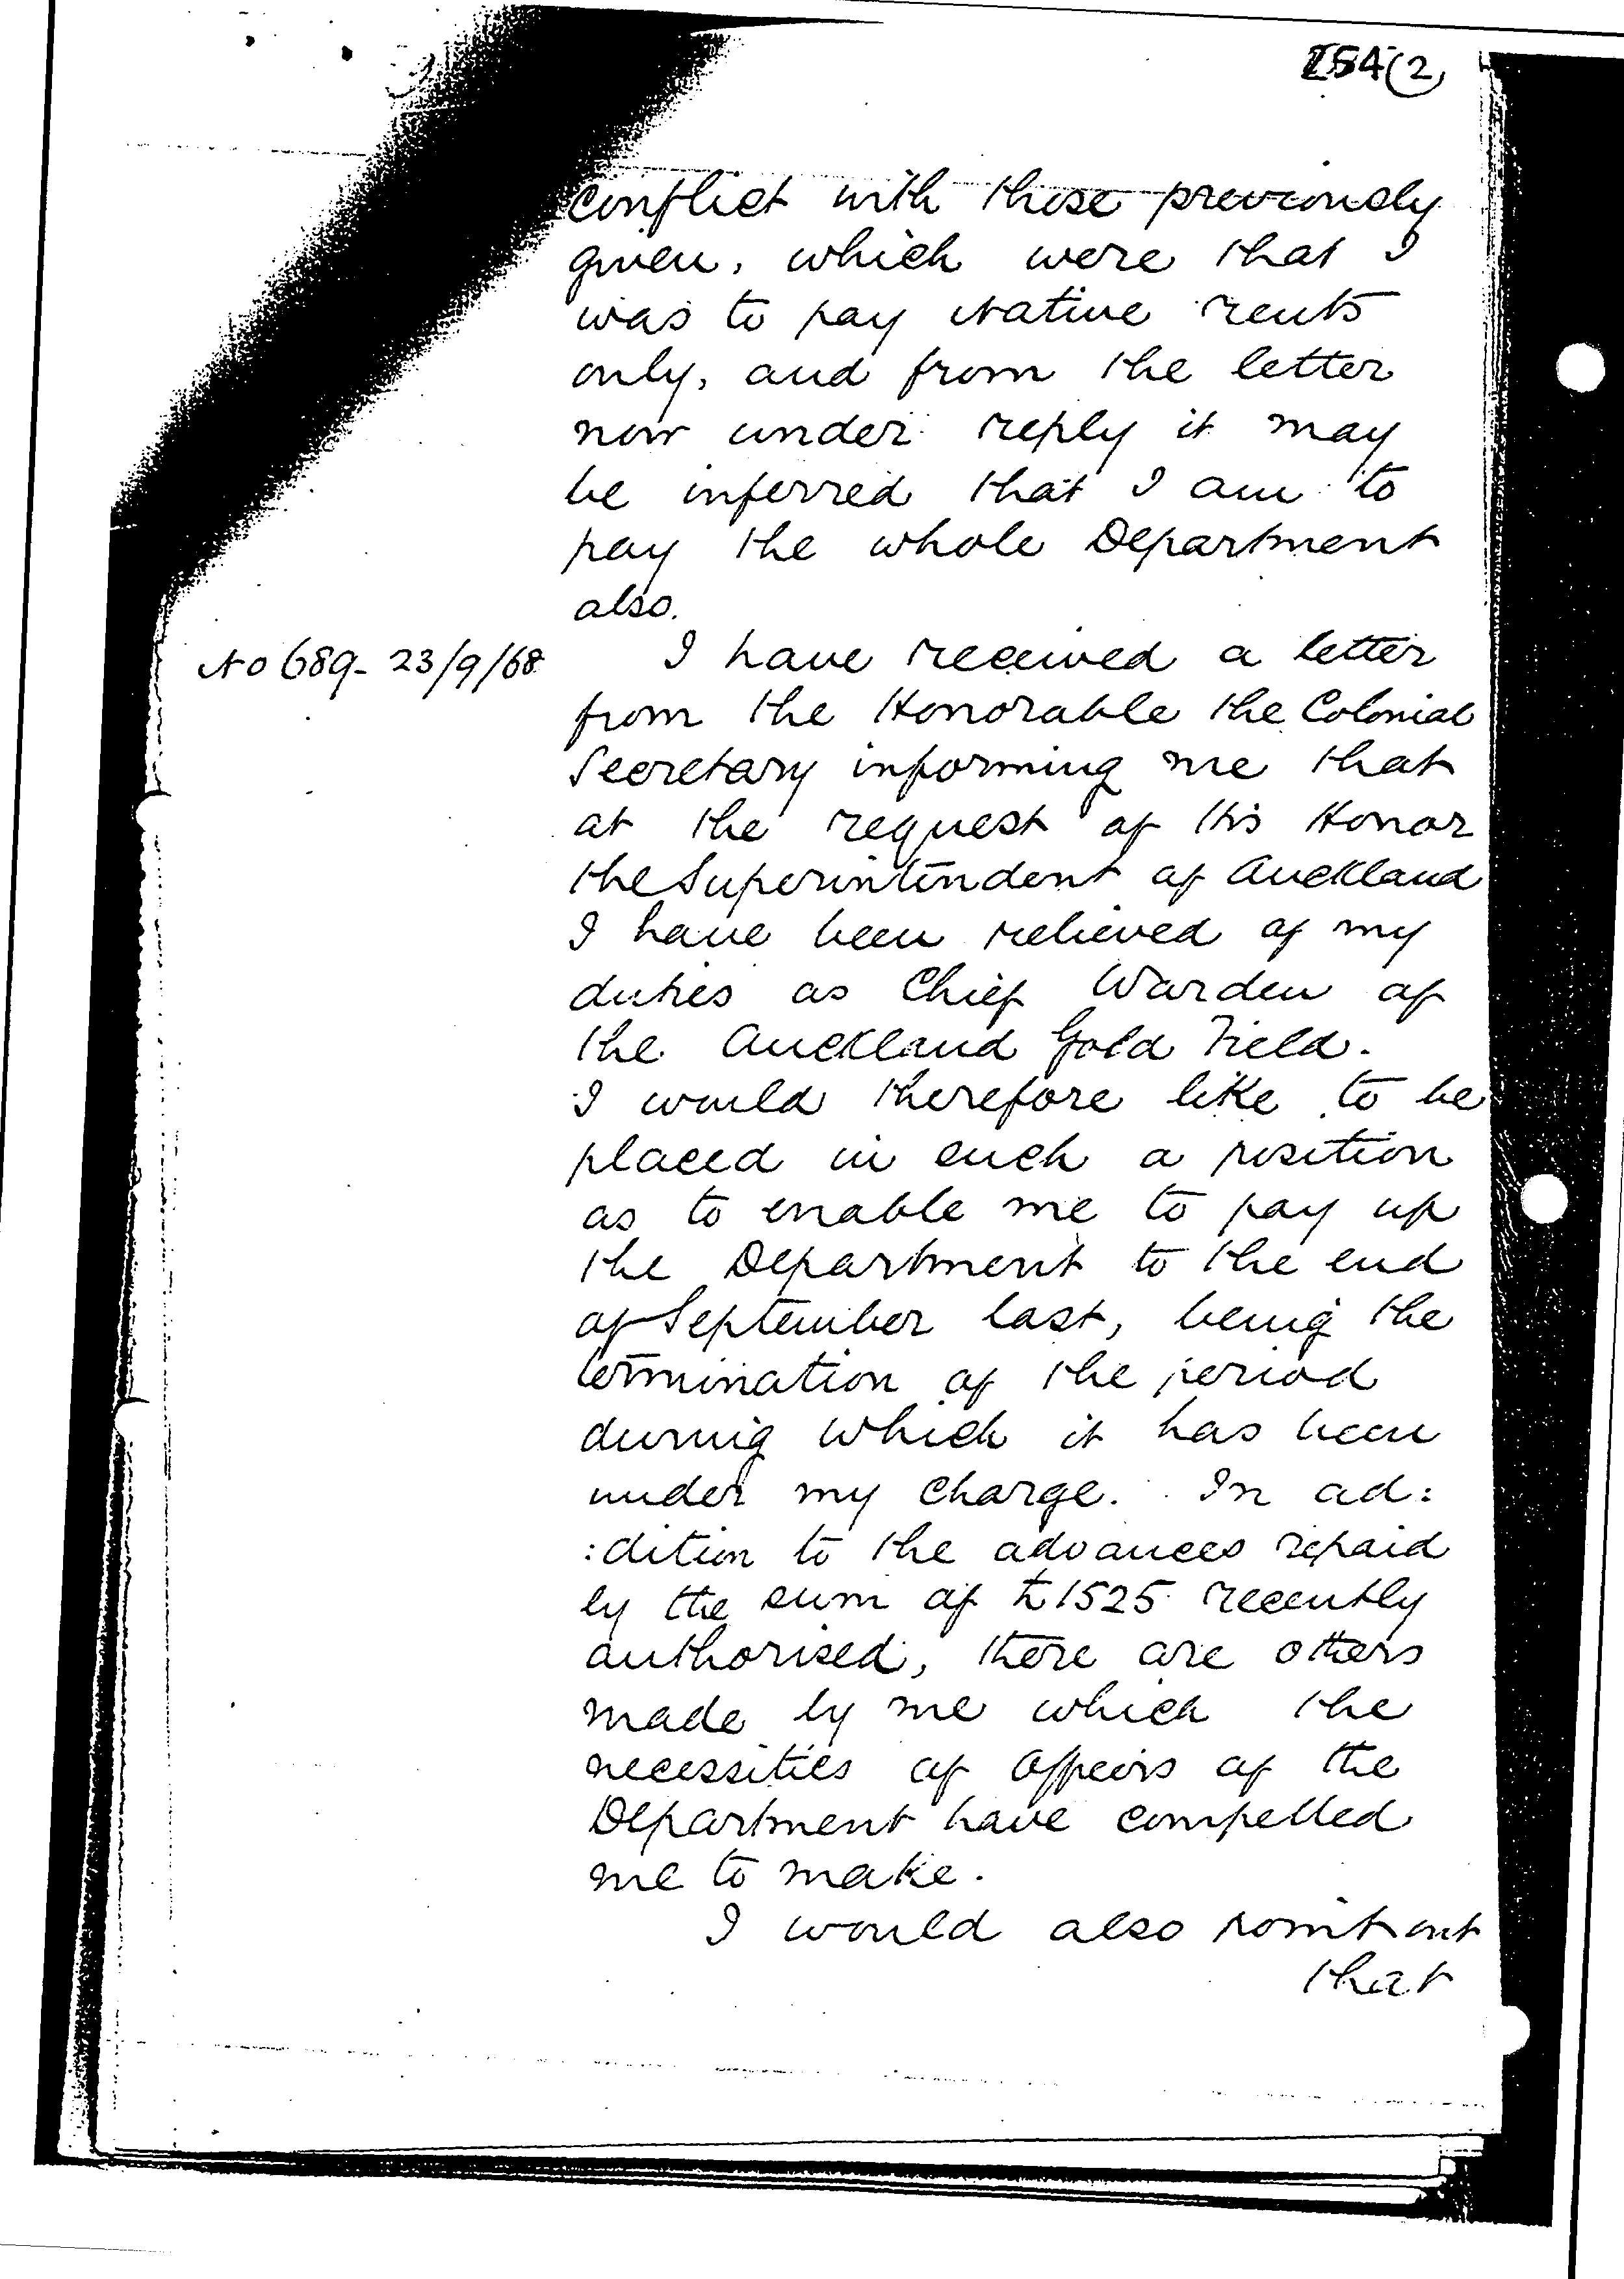 254(2)
conflict with those previously
given, which were that I
was to pay Native rents
only, and from the letter
now under reply it may
be inferred that I am to
pay the whole Department
also.
No 689- 23/9/68
I have received a letter
from the Honorable the Colonial
Secretary informing me that
at the request of His Honor
the Superintendent of Auckland
I have been relieved of my
duties as Chief Warden of
the Auckland Gold Field.
I would therefore like to be
placed in such a position
as to enable me to pay up
the Department to the end
of September last, being the
termination of the period
during which it has been
under my charge. In ad:
:dition to the advances repaid
by the sum of £1525 recently
authorised, there are others
made by me which the
necessities of Officers of the
Department have compelled
me to make.
I would also point out
that